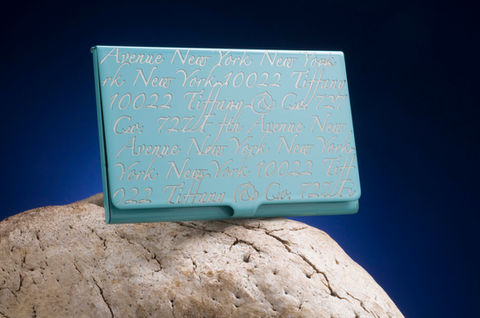 Avenue New York New York
rk New York 10022 Tiffany
10022 Tiffany & Co. 727
Co. 727 Fifth Avenue New
Avenue New York New York
York New York 10022 Tiff
022 Tiffany & Co. 727 F